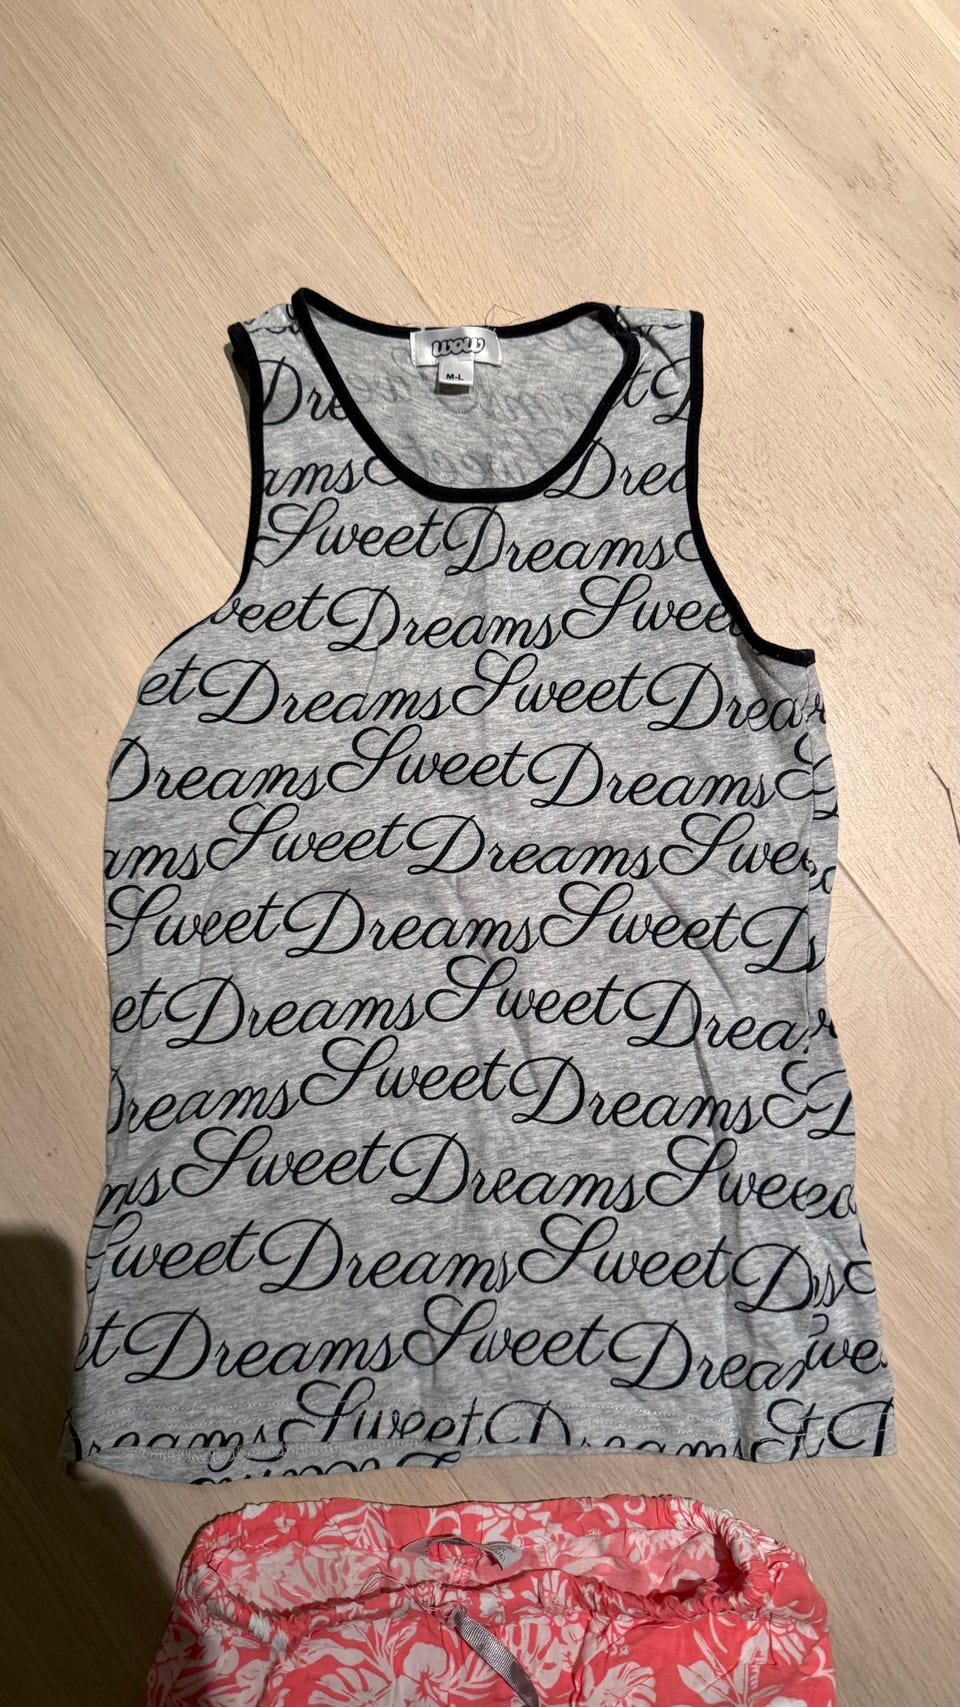 wow
M-L
Dre
ams Drea
Sweet Dreams
weet Dreams Sweet
et Dreams Sweet Drea
Dreams Sweet Dreams S
ams Sweet Dreams Swee
Sweet Dreams Sweet D
et Dreams Sweet Drea
Dreams Sweet Dreams S
ms Sweet Dreams Swee
Sweet Dreams Sweet D
et Dreams Sweet Drea we
Dreams Sweet Dreams